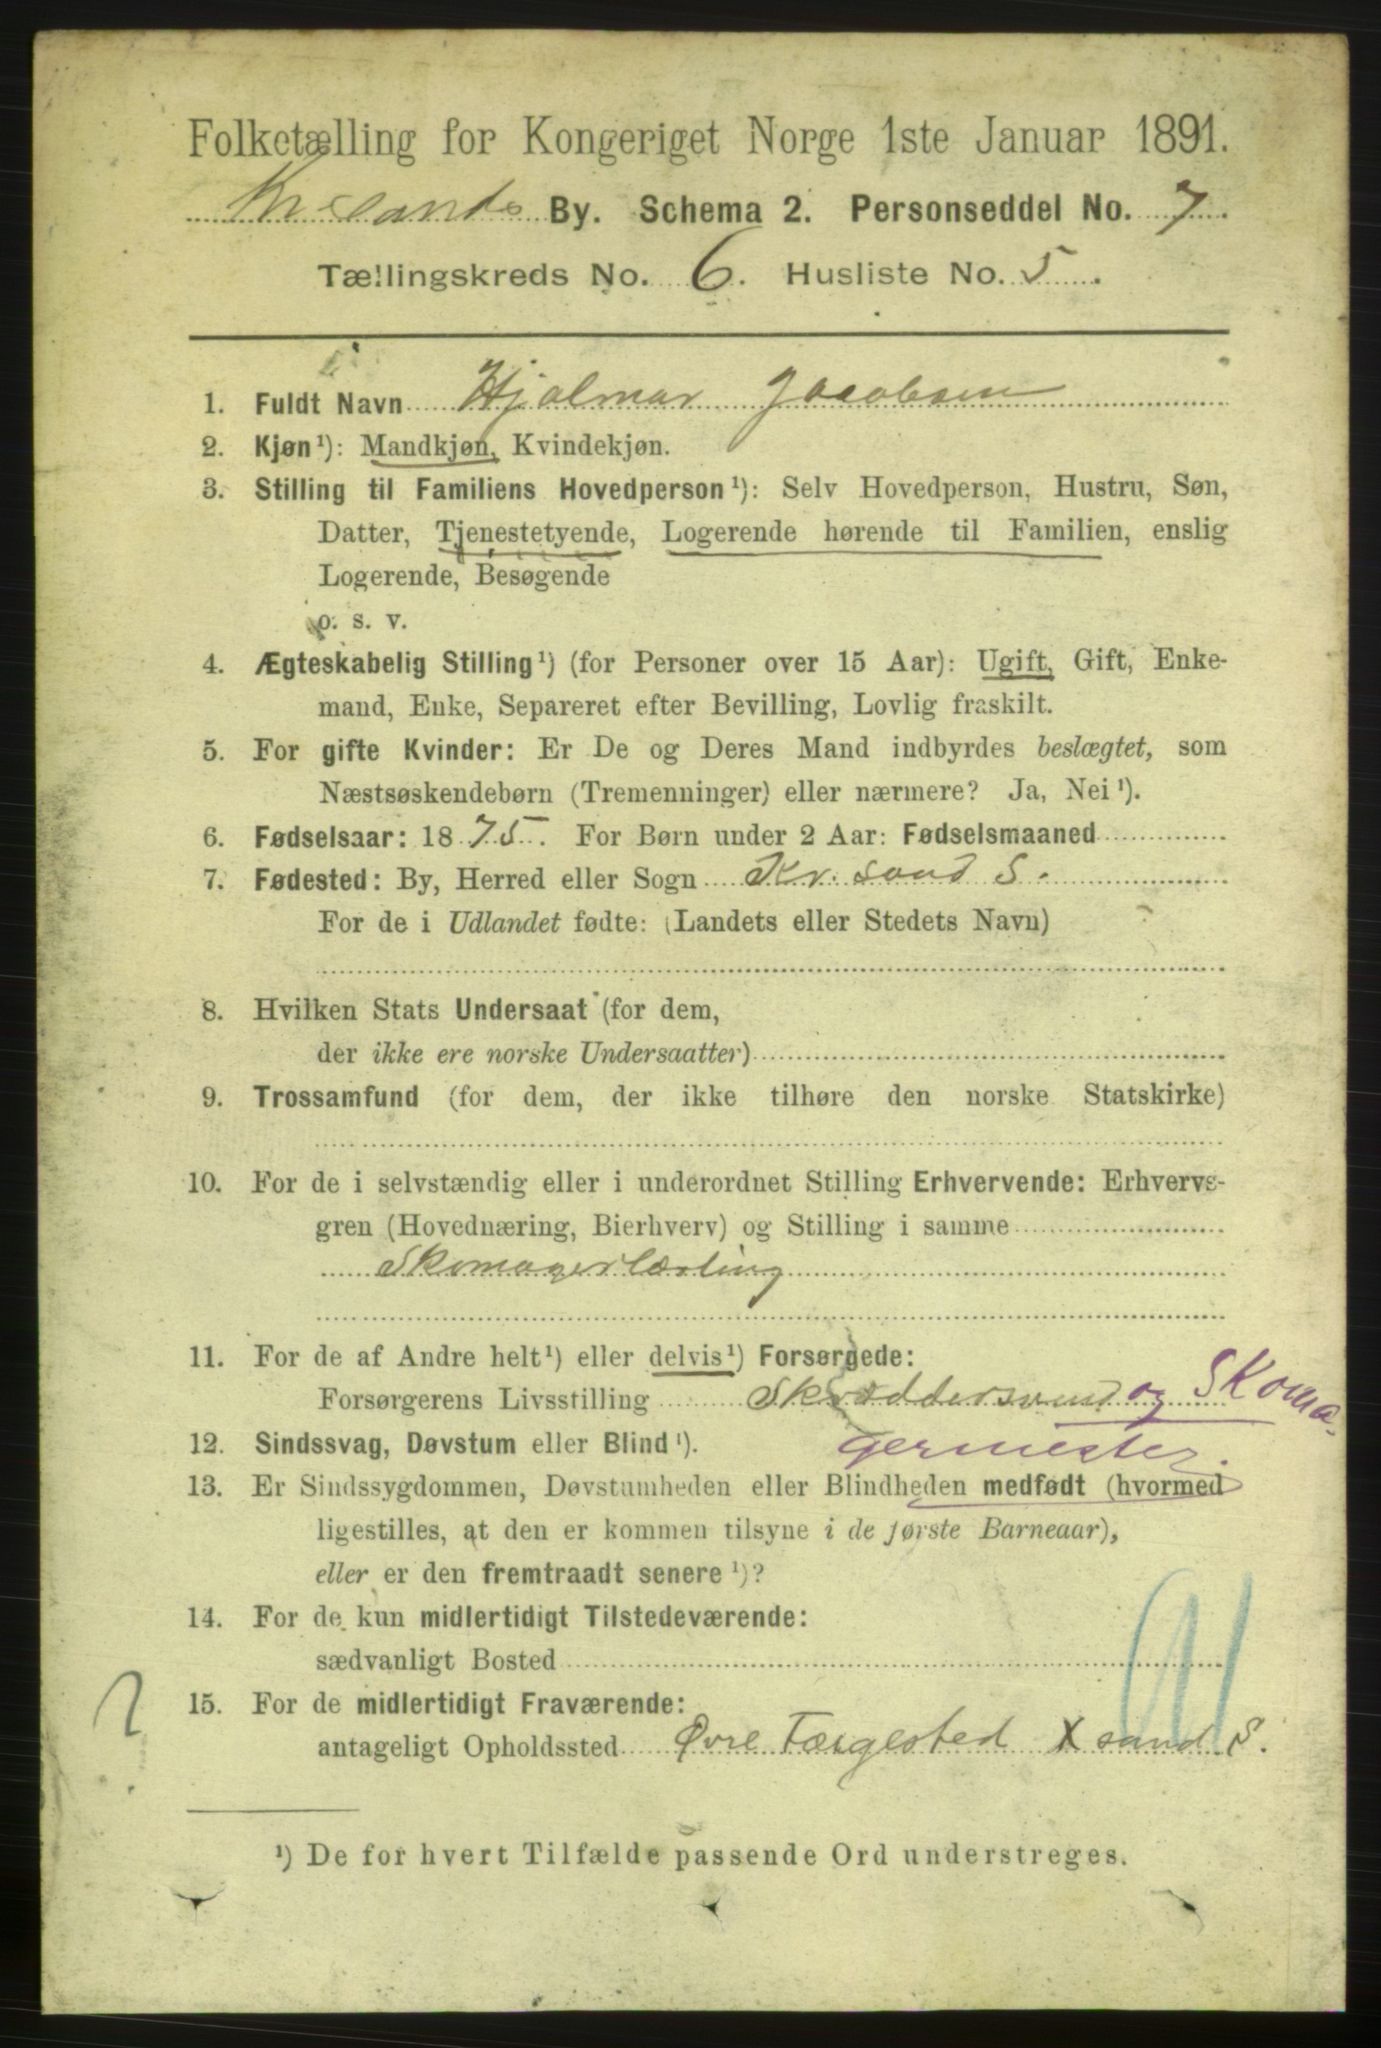 Folketælling for Kongeriget Norge 1ste Januar 1891.
Kr sands By. Schema 2. Personseddel No. 7.
Tællingskreds No. 6. Husliste No. 5.
1. Fuldt Navn Hjalmar Jacobsen
2. Kjøn ¹): Mandkjøn, Kvindekjøn.
3. Stilling til Familiens Hovedperson ¹): Selv Hovedperson, Hustru, Søn,
Datter, Tjenestetyende, Logerende hørende til Familien, enslig
Logerende, Besøgende
o. s. v.
4. Ægteskabelig Stilling ¹) (for Personer over 15 Aar): Ugift, Gift, Enke-
mand, Enke, Separeret efter Bevilling, Lovlig fraskilt.
5. For gifte Kvinder: Er De og Deres Mand indbyrdes beslægtet, som
Næstsøskendebørn (Tremenninger) eller nærmere? Ja, Nei ¹).
6. Fødselsaar: 1875. For Børn under 2 Aar: Fødselsmaaned
7. Fødested: By, Herred eller Sogn Kr. sand S.
For de i Udlandet fødte: (Landets eller Stedets Navn)
8. Hvilken Stats Undersaat (for dem,
der ikke ere norske Undersaatter)
9. Trossamfund (for dem, der ikke tilhøre den norske Statskirke)
10. For de i selvstændig eller i underordnet Stilling Erhvervende: Erhvervs-
gren (Hovednæring, Bierhverv) og Stilling i samme
Skomagerlærling
11. For de af Andre helt ¹) eller delvis ¹) Forsørgede:
Forsørgerens Livsstilling Skræddersvend og Skoma-
germester.
12. Sindssvag, Døvstum eller Blind ¹).
13. Er Sindssygdommen, Døvstumheden eller Blindheden medfødt (hvormed
ligestilles, at den er kommen tilsyne i de første Barneaar),
eller er den fremtraadt senere ¹)?
14. For de kun midlertidigt Tilstedeværende:
sædvanligt Bosted
15. For de midlertidigt Fraværende:
antageligt Opholdssted Øvre Færgested X sand S.
?
¹) De for hvert Tilfælde passende Ord understreges.